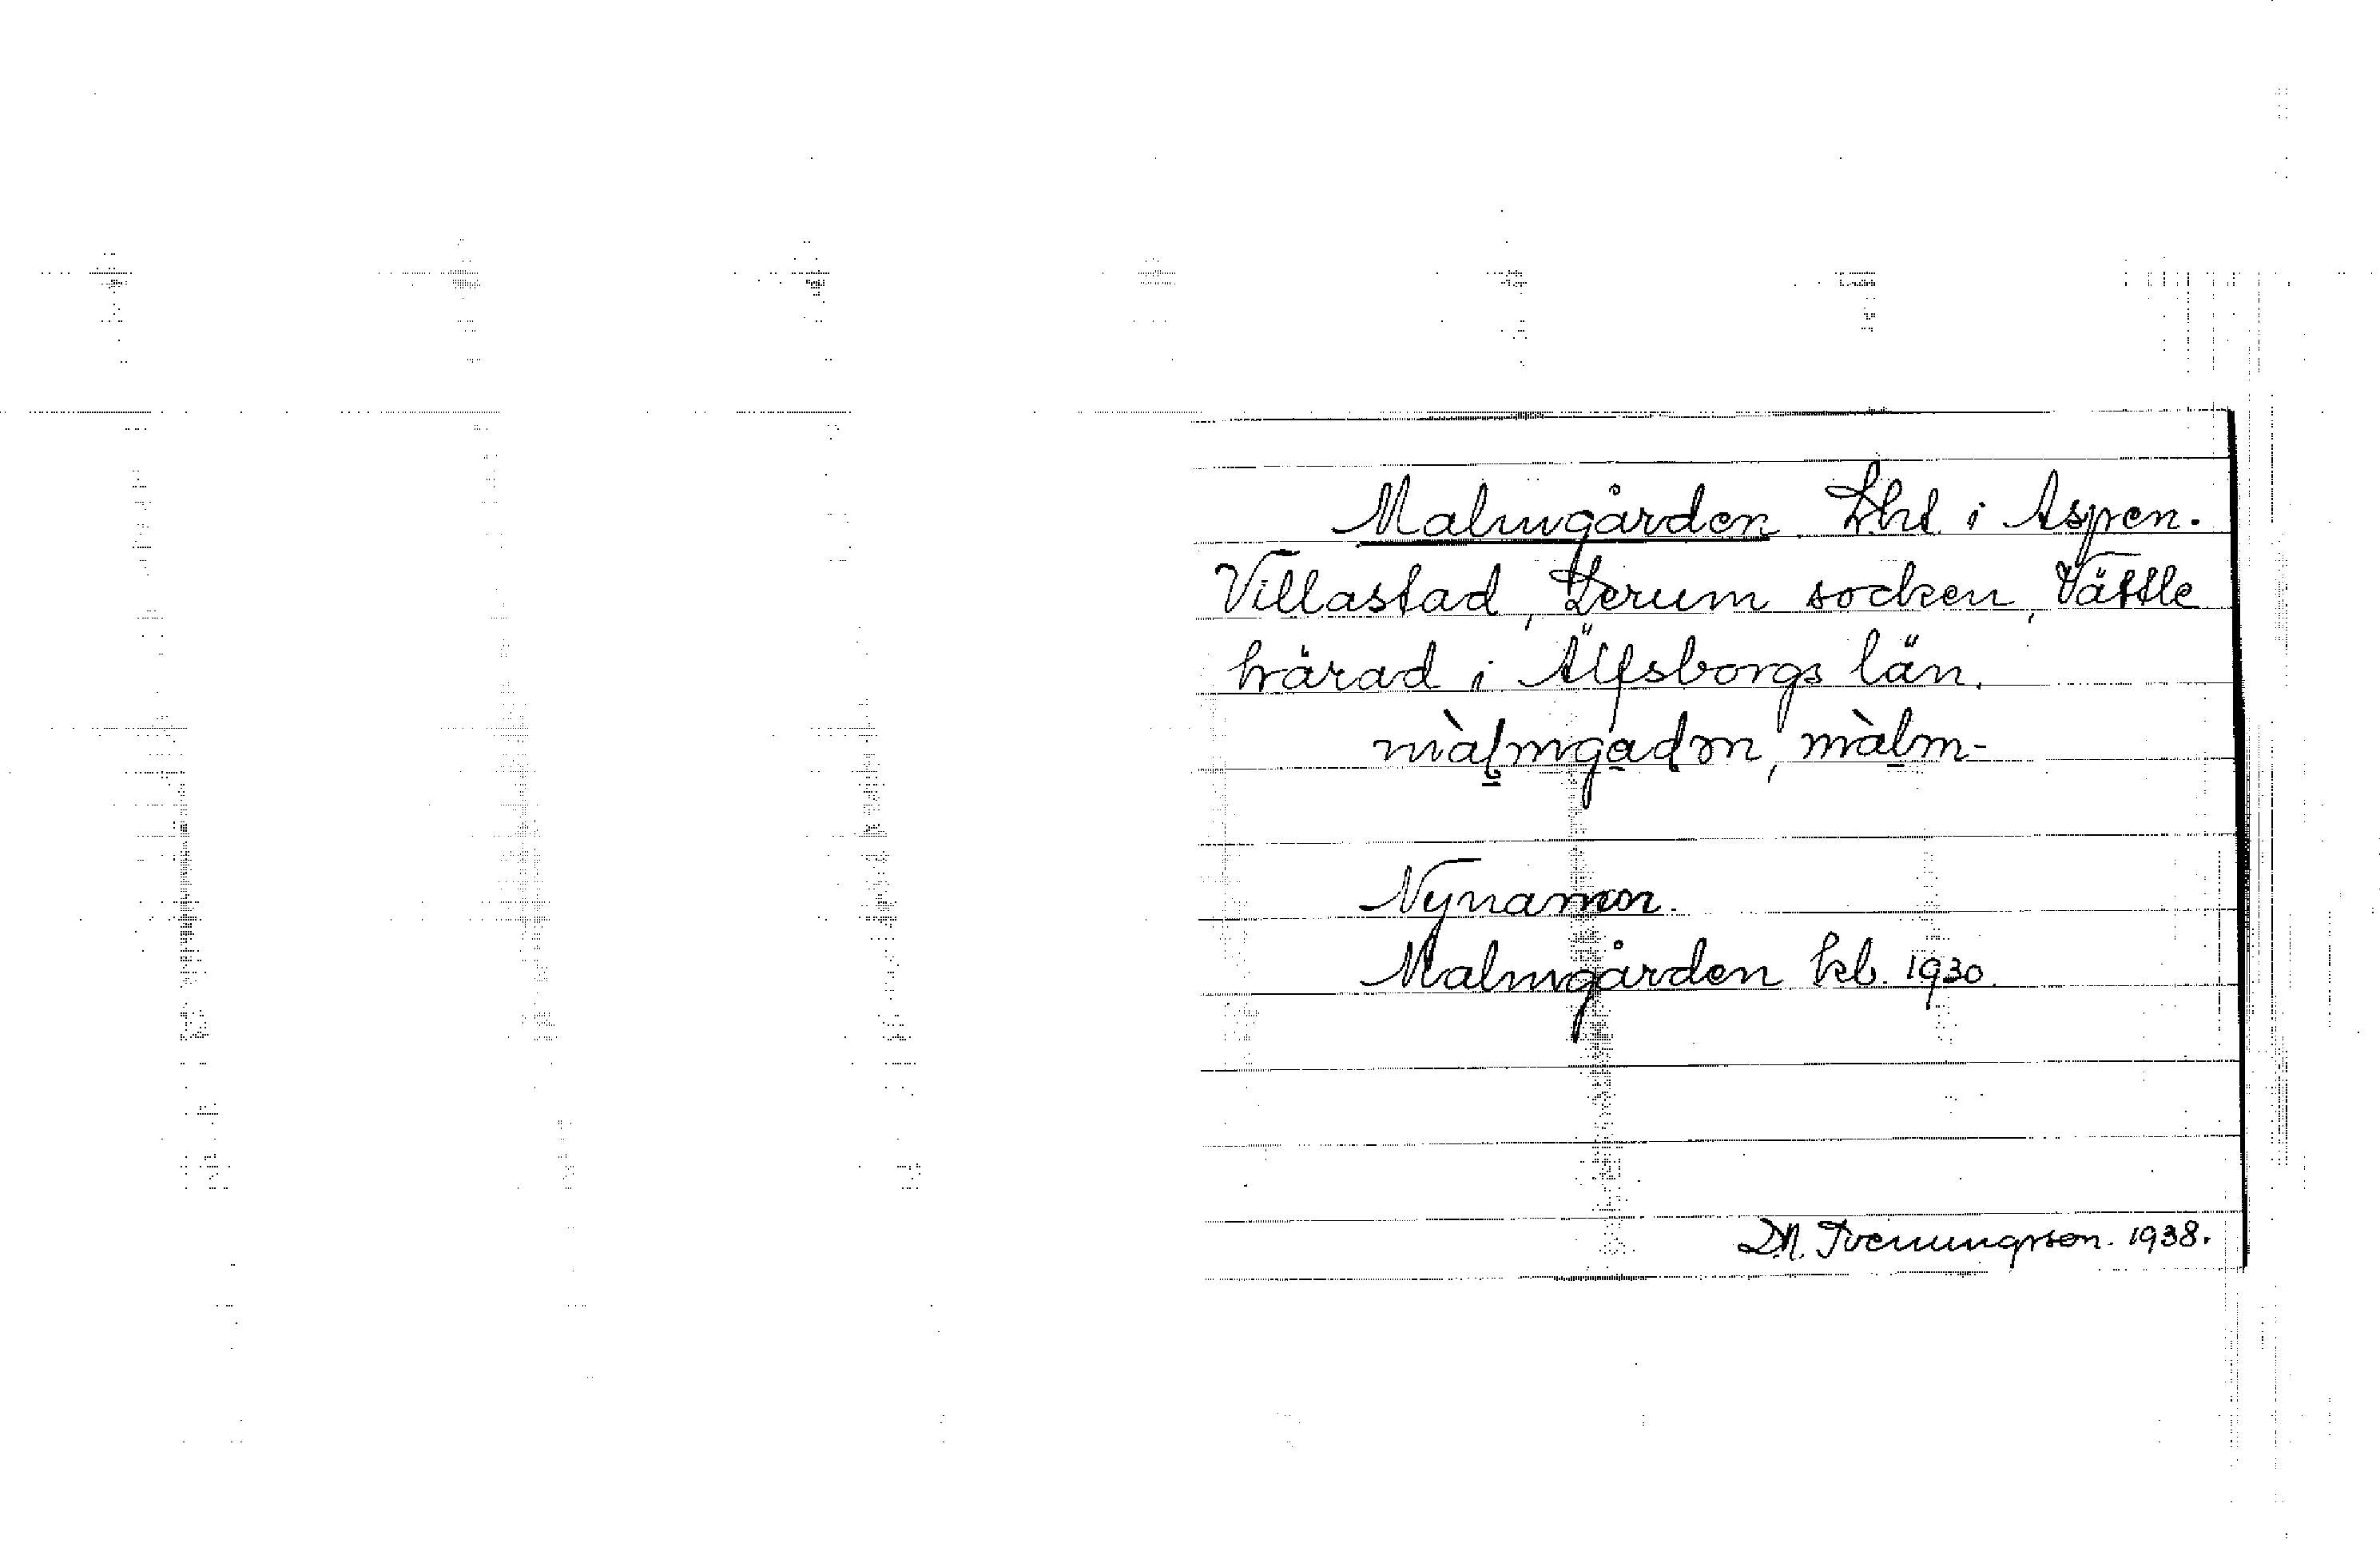 Malmgården Lht i Aspen.
Villastad, Lerum socken, Vättle
härad i Älfsborgs län.
màlmgadɷn, màlm-
Nynamn.
Malmgården kb. 1930.
D.N. Tveningsson. 1938.